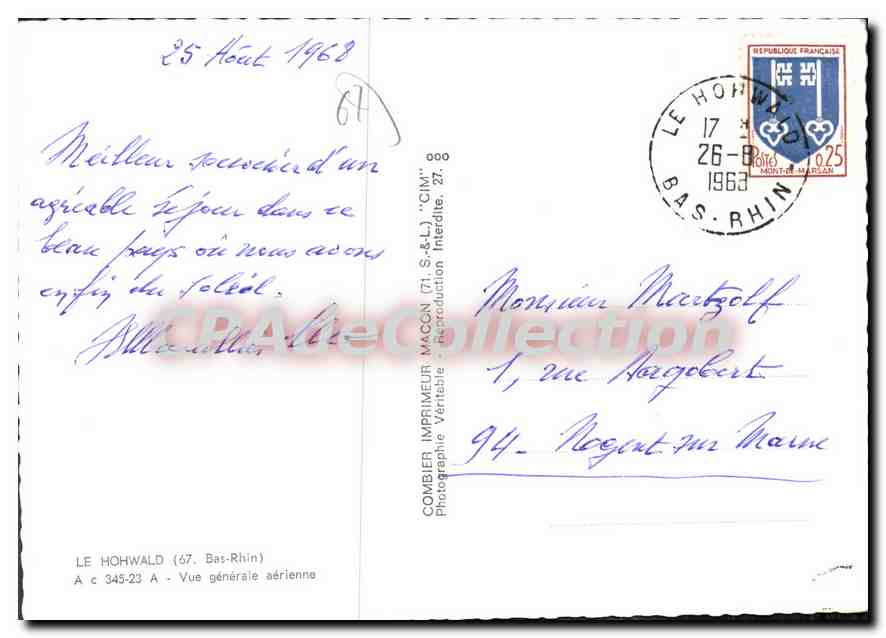 25 Août 1968
67
Meilleur souvenir d'un
agréable séjour dans ce
beau pays où nous avons
enfin du soleil.
LE HOHWALD (67. Bas-Rhin)
A c 345-23 A - Vue générale aérienne
COMBIER IMPRIMEUR MACON (71. S.-&-L.) "CIM"
Photographie Véritable - Reproduction Interdite. 27.
REPUBLIQUE FRANÇAISE
POSTES
0,25
MONT-DE-MARSAN
LE HOHWALD
17 H
26-8
1968
BAS-RHIN
Monsieur Martzolff
1, rue Dagobert
94 - Nogent sur Marne
CPAdeCollection